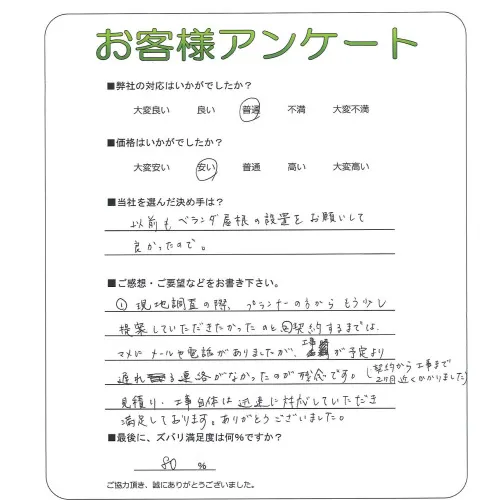 お客様アンケート
■弊社の対応はいかがでしたか?
大変良い 良い 普通 不満 大変不満
■価格はいかがでしたか?
大変安い 安い 普通 高い 大変高い
■当社を選んだ決め手は?
以前もベランダ屋根の設置をお願いして
良かったので。
■ご感想・ご要望などをお書き下さい。
①現地調査の際、プランナーの方からもう少し
提案していただきたかったのと②契約するまでは、
マメにメールや電話がありましたが、工事が予定より
遅れる連絡がなかったのが残念です。(契約から工事まで
2ヶ月近くかかりました)
見積り・工事自体は迅速に対応していただき
満足しております。ありがとうございました。
■最後に、ズバリ満足度は何%ですか?
80 %
ご協力頂き、誠にありがとうございました。